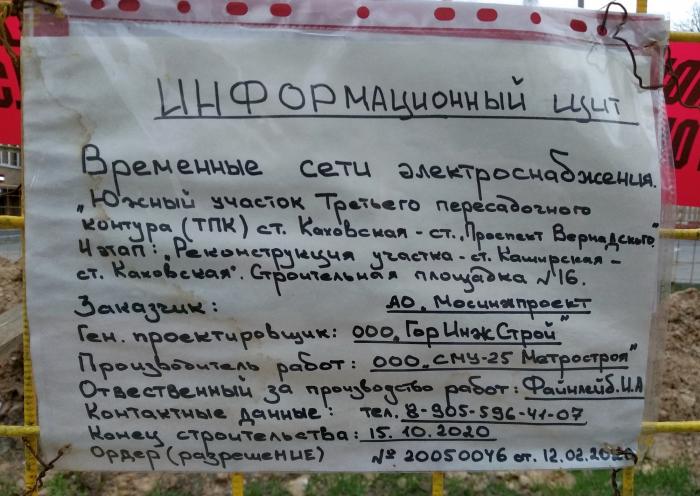 ИНФОРМАЦИОННЫЙ ЩИТ
Временные сети электроснабжения.
„Южный участок Третьего пересадочного
контура (ТПК) ст. Каховская - ст. „Проспект Вернадского"
4 этап: „Реконструкция участка - ст. Каширская -
ст. Каховская". Строительная площадка №16.
Заказчик: АО „Мосинжпроект
Ген. проектировщик: ООО „ГорИнжСтрой"
Производитель работ: ООО „СМУ-25 Метростроя"
Отвественный за производство работ: Файнлейб. И.А
Контактные данные: тел. 8-905-596-41-07
Конец строительства: 15.10.2020
Ордер (разрешение) № 20050046 от. 12.02.2020